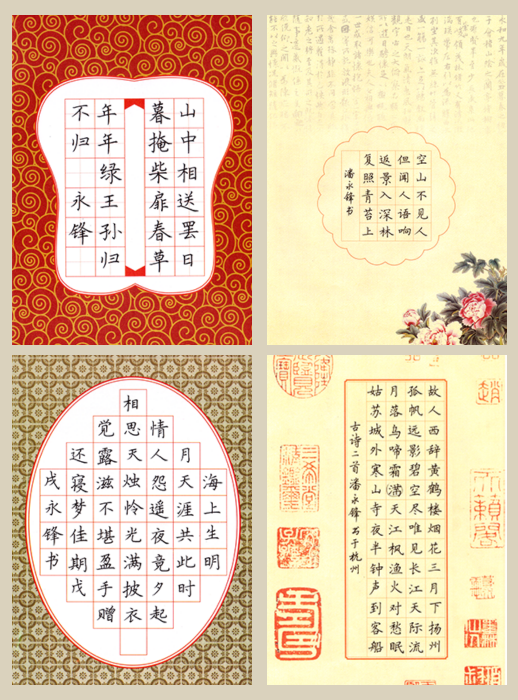 山中相送罢日
暮掩柴扉春草
年年绿王孙归
不归 永锋
空山不见人
但闻人语响
返景入深林
复照青苔上
潘永锋书
海上生明
月天涯共此时
情人怨遥夜竟夕起
相思天烛怜光满披衣
觉露滋不堪盈手赠
还寝梦佳期戊
戌永锋书
故人西辞黄鹤楼烟花三月下扬州
孤帆远影碧空尽唯见长江天际流
月落乌啼霜满天江枫渔火对愁眠
姑苏城外寒山寺夜半钟声到客船
古诗二首潘永锋书于杭州